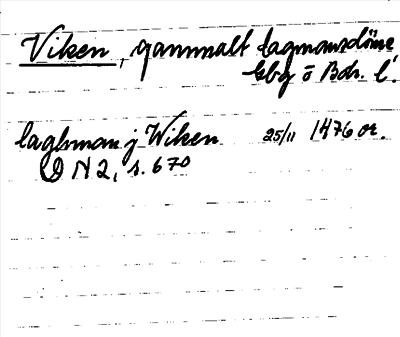 Viken, gammalt lagmansdöme
Gbg o Boh. l.
laghman j Wiken 25/11 1476 or.
D N 2, s. 670